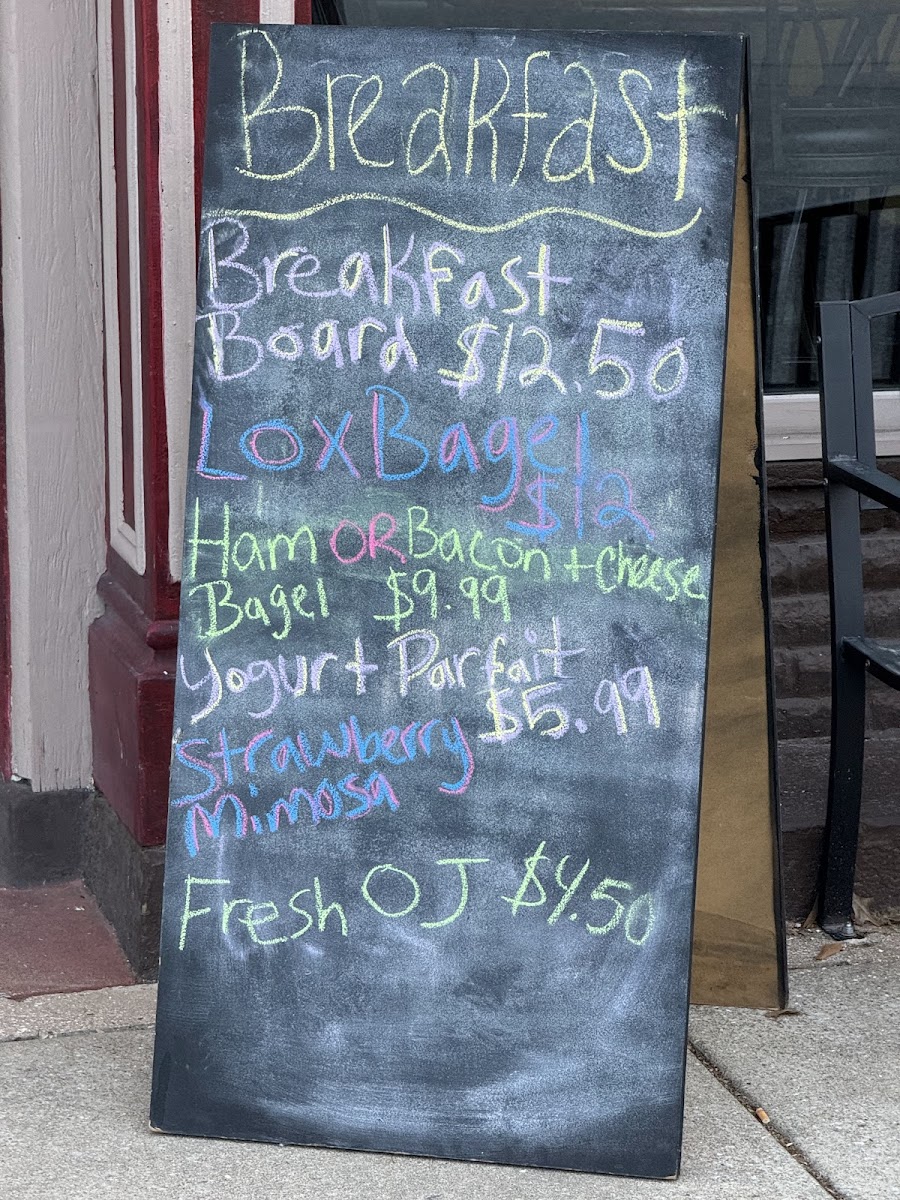 Breakfast
Breakfast
Board $12.50
Lox Bagel
$12
Ham OR Bacon + Cheese
Bagel $9.99
Yogurt Parfait
$5.99
Strawberry
Mimosa
Fresh OJ $4.50